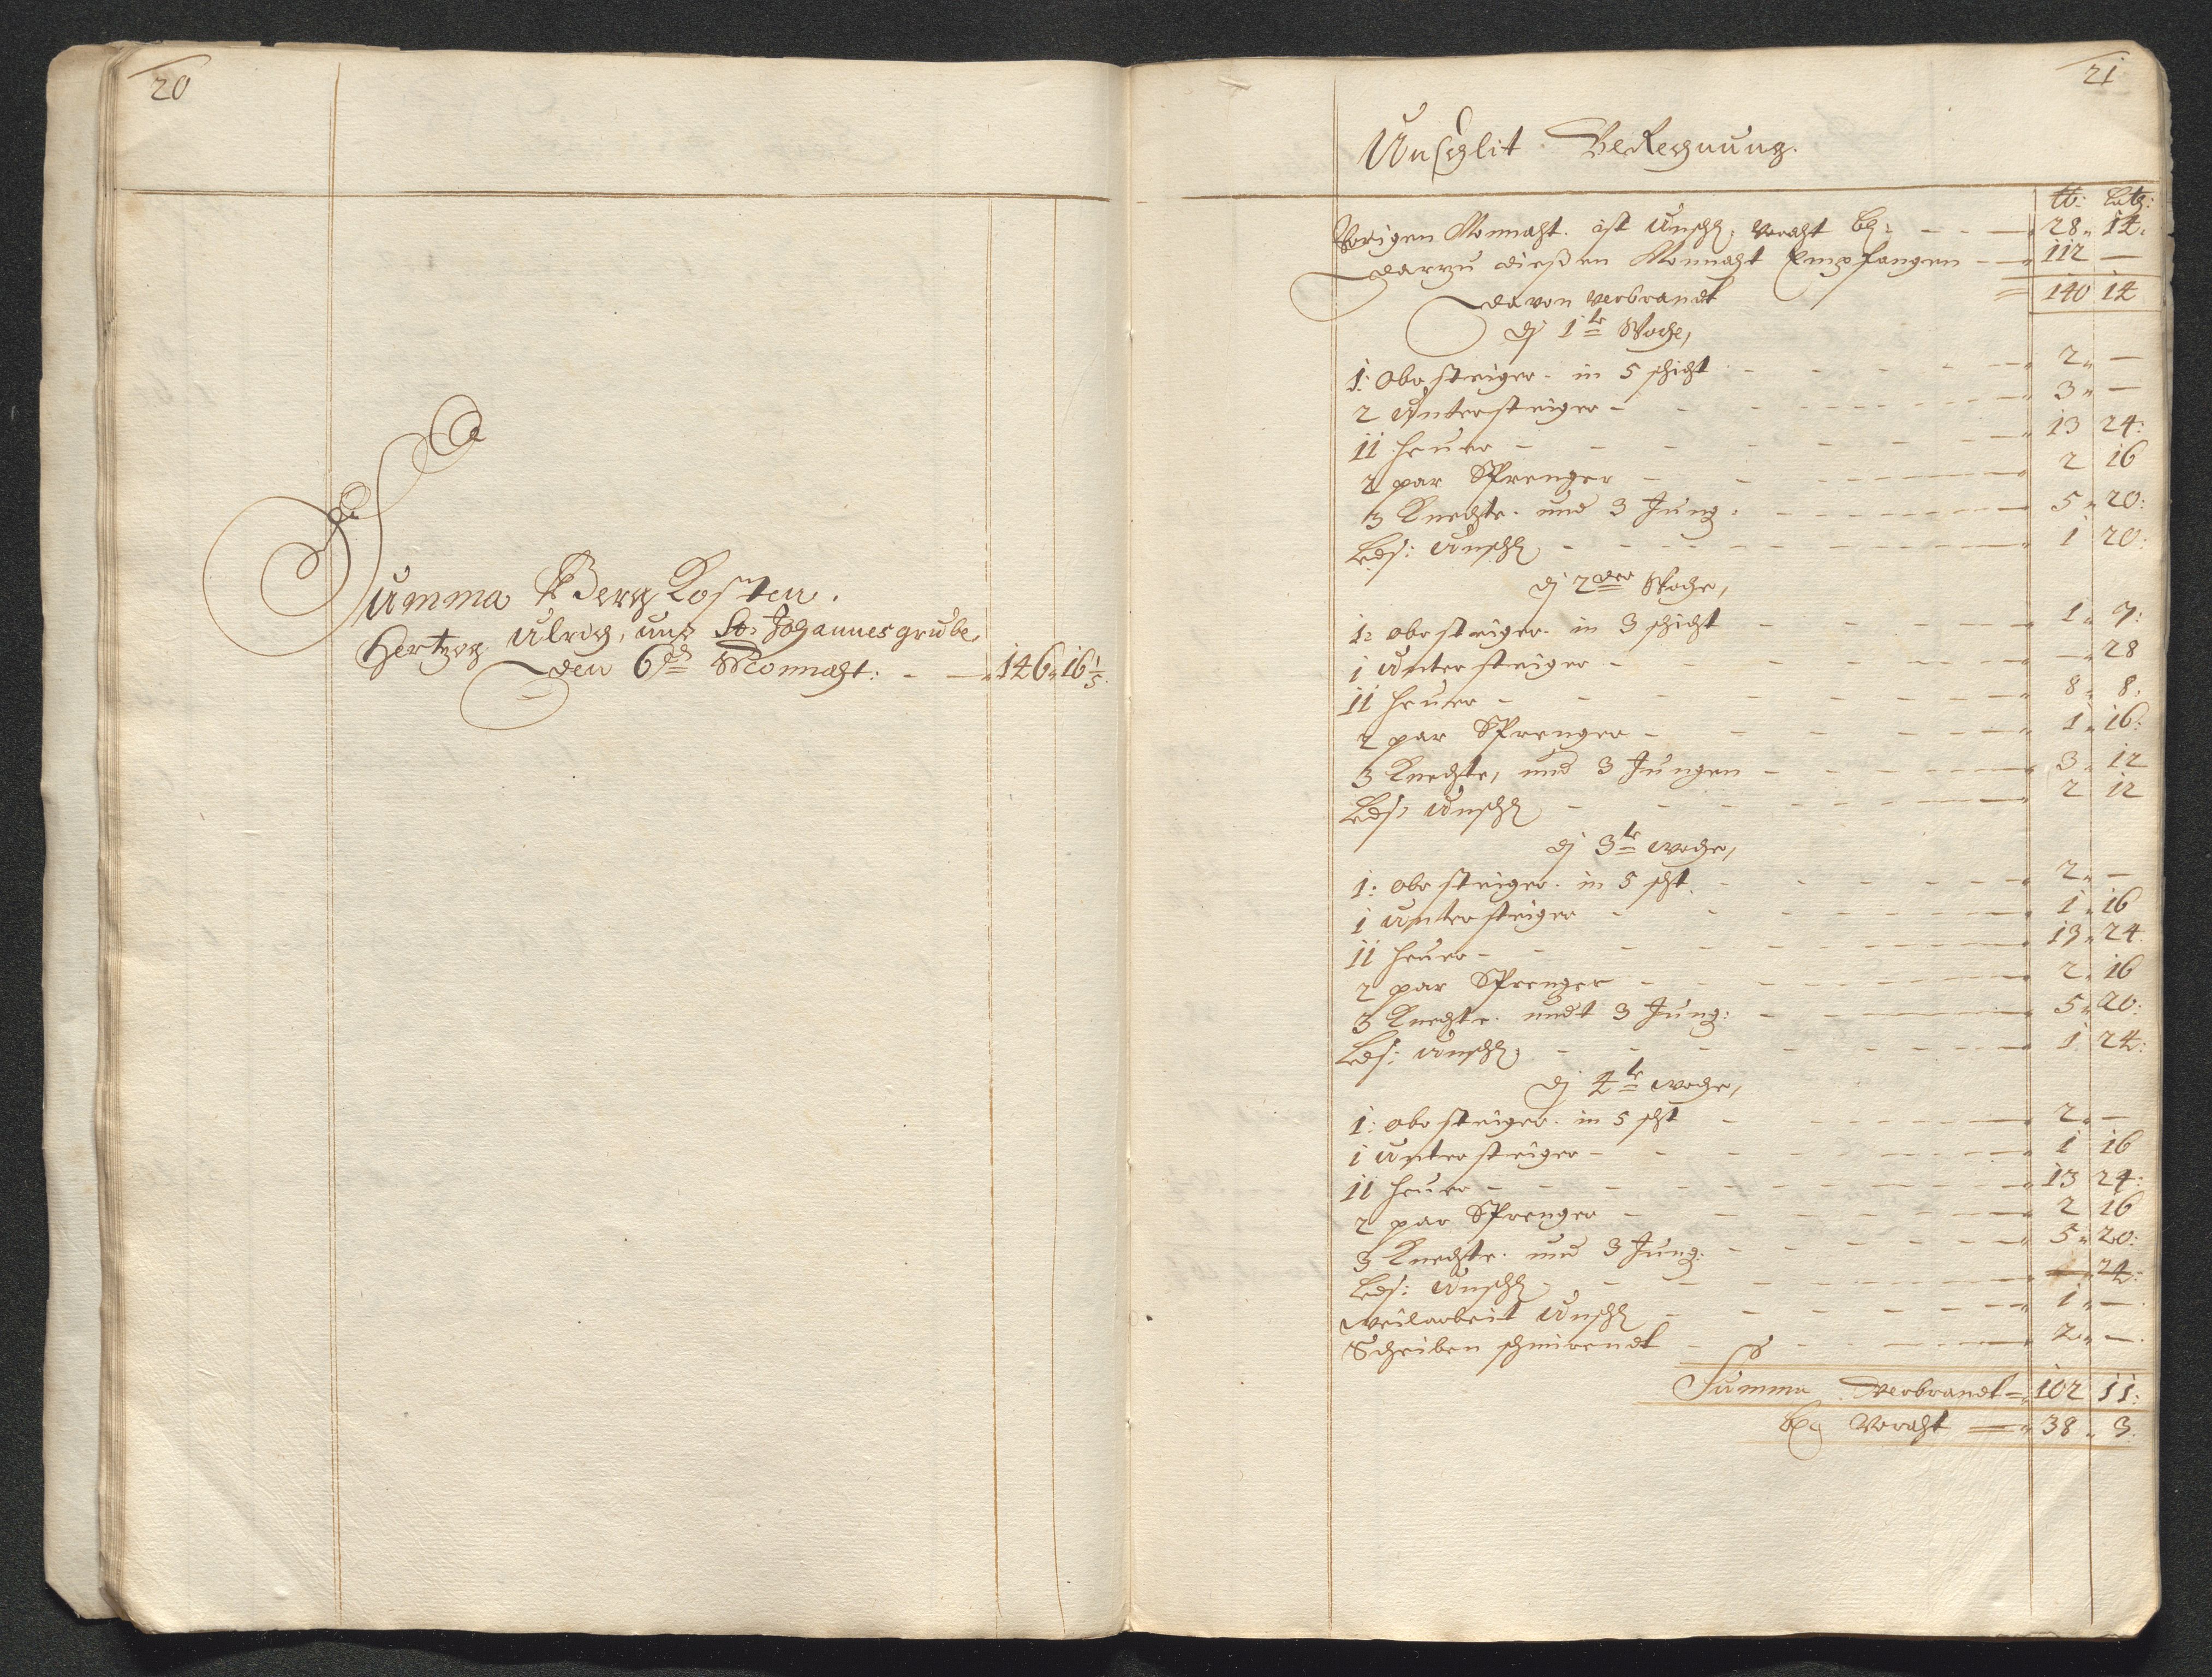 20
Summa Berg Kosten.
Hertzog Ulrich, und St: Johannes grube,
den 6t Monnaht: - - 146 " 16 1/5.
21
Unschlit BeRechnung.
tt: Loth:
Vorigen Monnaht. ist Unschl: Voraht bl: - - - 28 " 14:
darzu dießen Monnaht Empfangen - - 112 —
= 140 14
davon verbrandt
dj 1te Woche,
1: Obr steiger. in 5 schicht - - - 2 " —
2 Untersteiger - - - 3 " —
11 heuer - - - 13 24:
2 par Sprenger - - - 2 16
3 Knechte. und 3 Jung: - - - 5 " 20:
Leds: Unschl - - - 1 20:
dj 2der Woche,
1: obr steiger. in 3 schicht - - - 1 " 7:
1 Unter steiger - - - — " 28
11 heuer - - - 8 " 8:
2 par Sprenger - - - 1 " 16:
3 Knechte, und 3 Jungen - - - 3 " 12
Leds: Unschl - - - 2 12
dj 3te woche,
1: obr steiger. in 5 scht. - - - 2 " —
1 Unter steiger - - - 1 " 16
11 heuer - - - 13 " 24.
2 par Sprenger - - - 2 " 16
3 Knechte. undt 3 Jung: - - - 5 " 20:
Leds: Unschl: - - - 1 24:
dj 4te woche,
1: obr steiger. in 5 scht - - - 2 " —
1 Unter steiger - - - 1 16
11 heuer - - - 13 24:
2 par Sprenger - - - 2 16
3 Knechte. und 3 Jung: - - - 5 " 20:
Leds: Unschl - - - " 24:
weilarbeit Unschl - - - 1 " —.
Scheiben schmirendt - - - 2 " —.
Summa verbrandt = 102 11:
Voraht = 38 " 3.